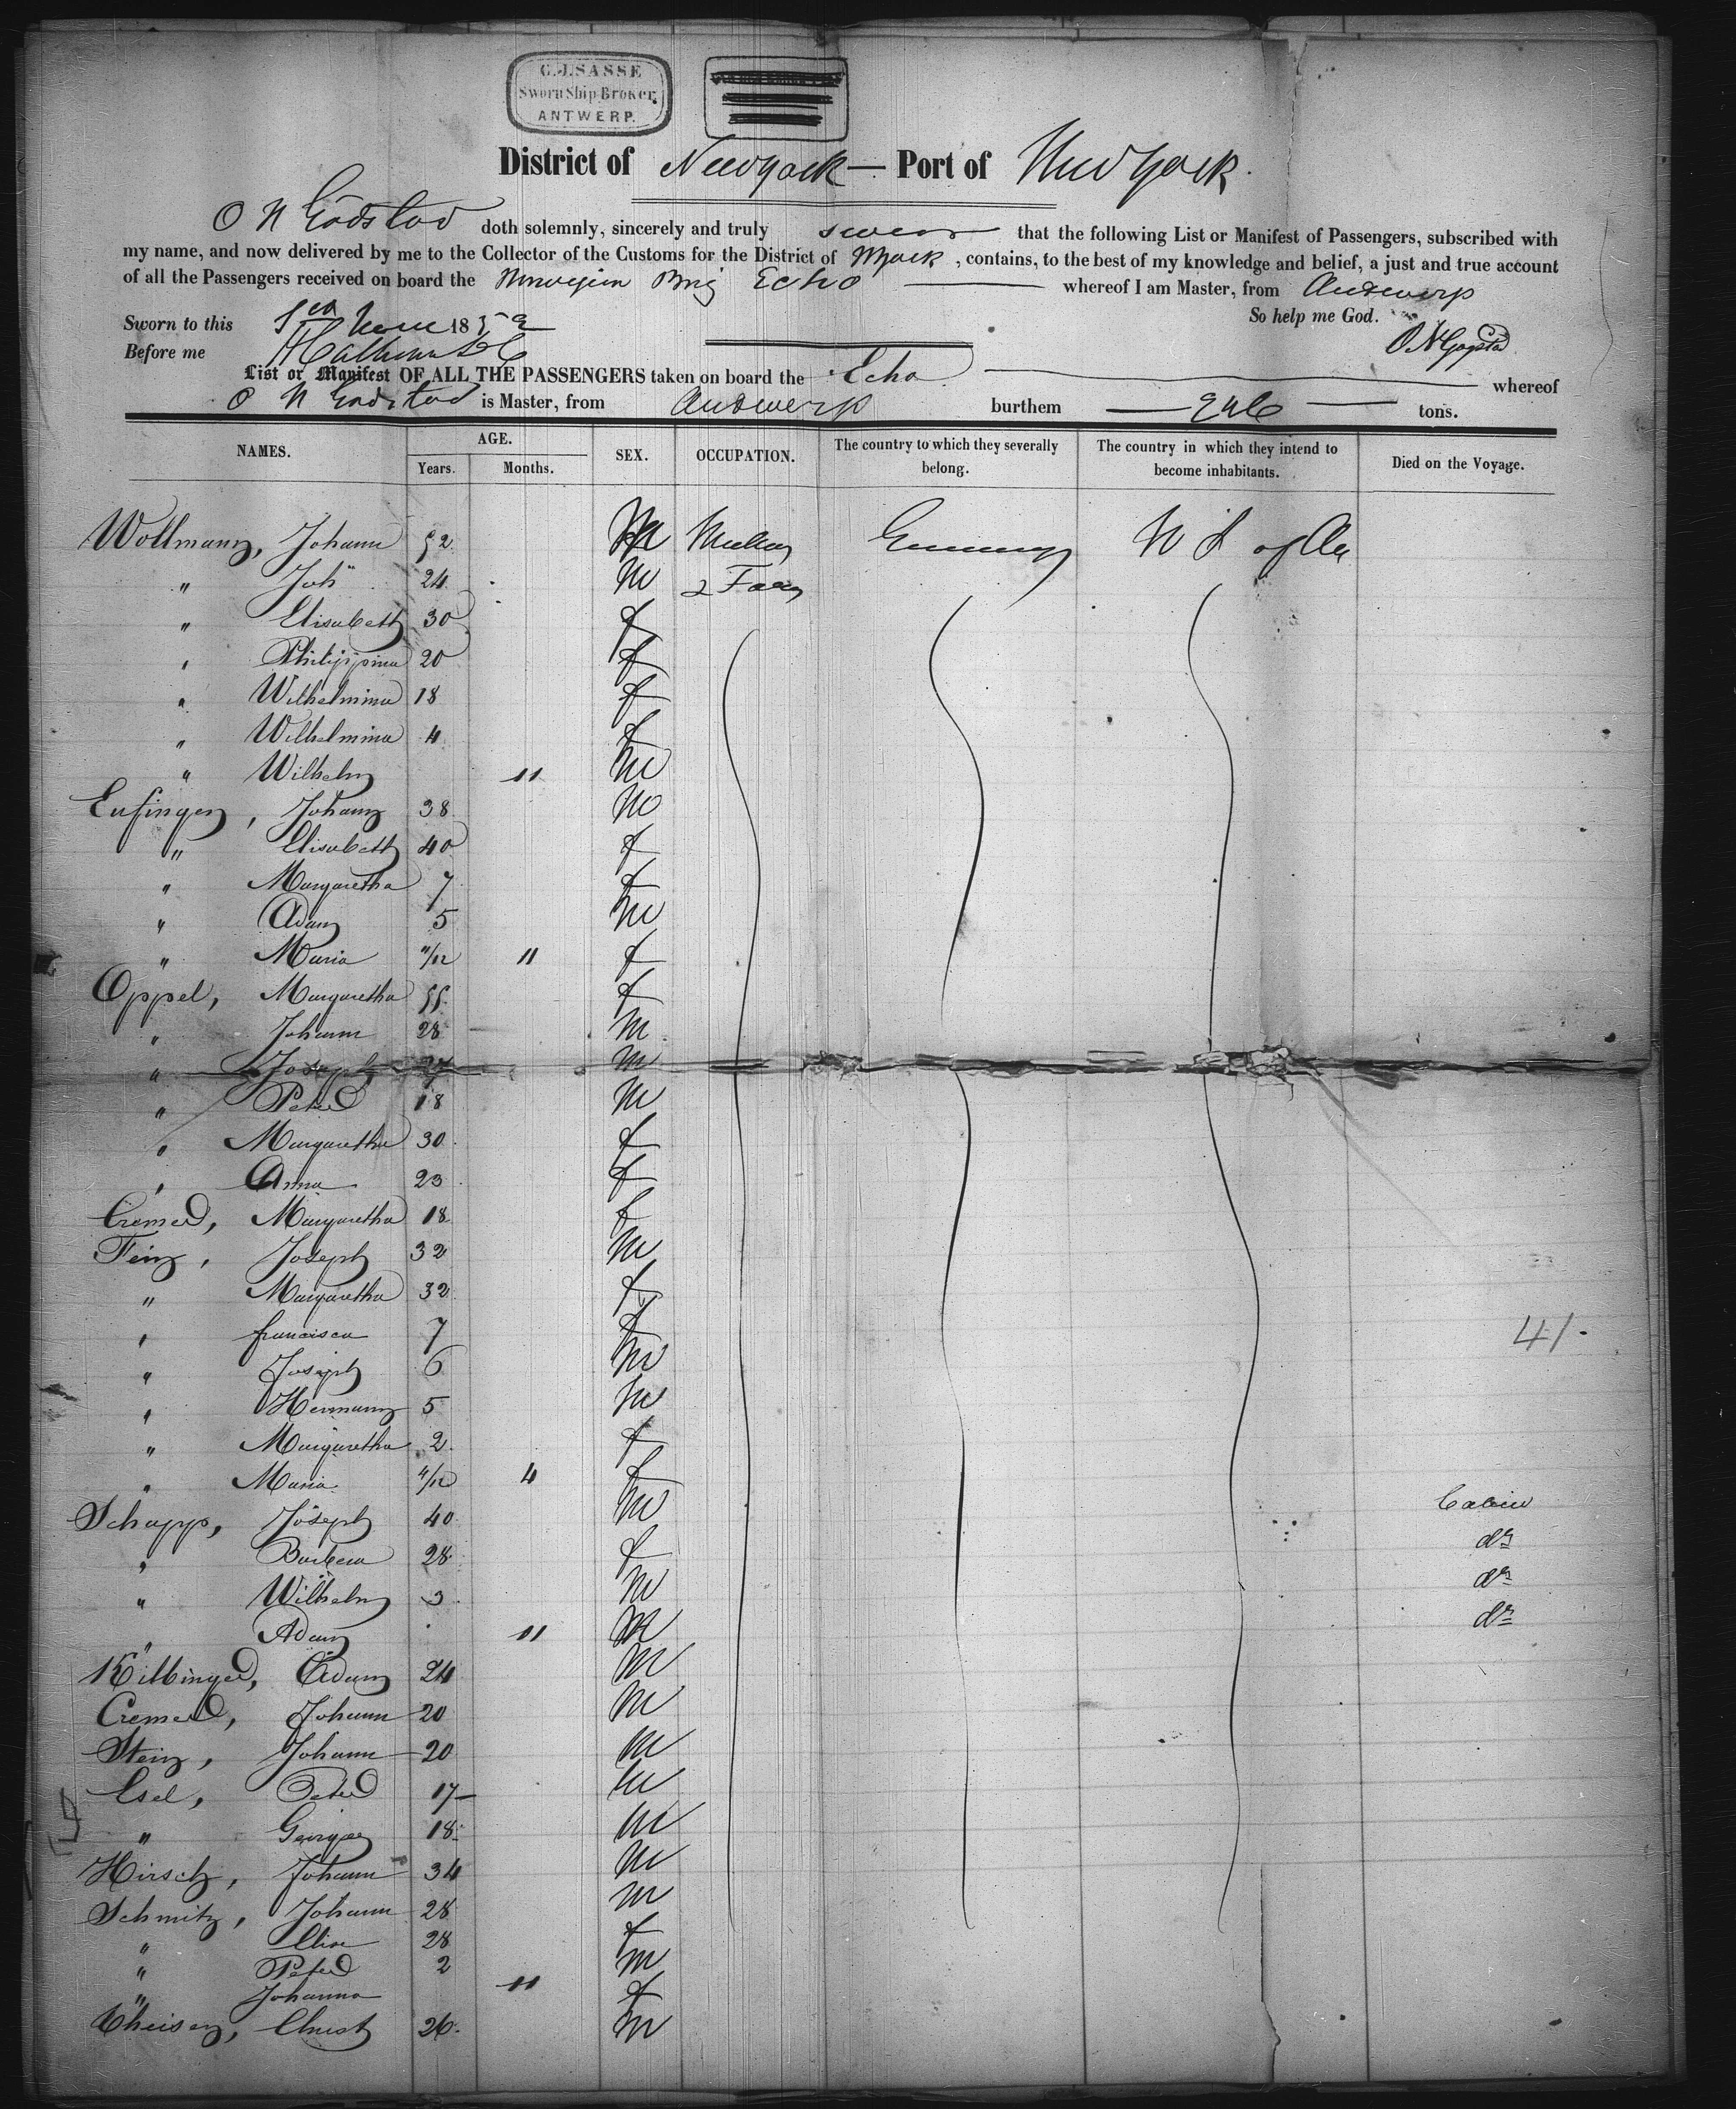 C.J. SASSE
Sworn Ship-Broker,
ANTWERP.
District of Newyork — Port of New York.
O N doth solemnly, sincerely and truly swear that the following List or Manifest of Passengers, subscribed with
my name, and now delivered by me to the Collector of the Customs for the District of NYork, contains, to the best of my knowledge and belief, a just and true account
of all the Passengers received on board the Norwegian Brig Echo whereof I am Master, from Antwerp
So help me God.
Sworn to this 185
Before me
List or Manifest OF ALL THE PASSENGERS taken on board the Echo whereof
O N is Master, from Antwerp burthem tons.
NAMES. AGE. SEX. OCCUPATION. The country to which they severally belong. The country in which they intend to become inhabitants. Died on the Voyage.
Years. Months.
Wollmann, Johann 52 M Germany U S of Am
" Joh" 24 M
" Elisabeth 30 f
" Philippina 20 f
" Wilhelmina 18 f
" Wilhelmina 4 f
" Wilhelm 11 M
Eufingen, Johann 38 M
" Elisabeth 40 f
" Margaretha 7 f
" Adam 5 M
" Maria 11/12 11 f
Oppel, Margaretha 55 f
" Johann 28 M
" Joseph 27 M
" Peter 18 M
" Margaretha 30 f
" Anna 23 f
Cremer, Margaretha 18 f
Fein, Joseph 32 M
" Margaretha 32 f
" francisca 7 f
" Joseph 6 M
" Hermann 5 M
" Margaretha 2 f
" Maria 4/12 4 f
Schapp, Joseph 40 M Cabin
" Barbara 28 f do
" Wilhelm 3 M do
" Adam 11 M do
Kilbinger, Adam 24 M
Cremer, Johann 20 M
Stein, Johann 20 M
Esel, Peter 17 M
" George 18 M
Hirsch, Johann 34 M
Schmitz, Johann 28 M
" Elise 28 f
" Peter 2 M
" Johanna 11 f
Theisen, Christ 26 M
41.